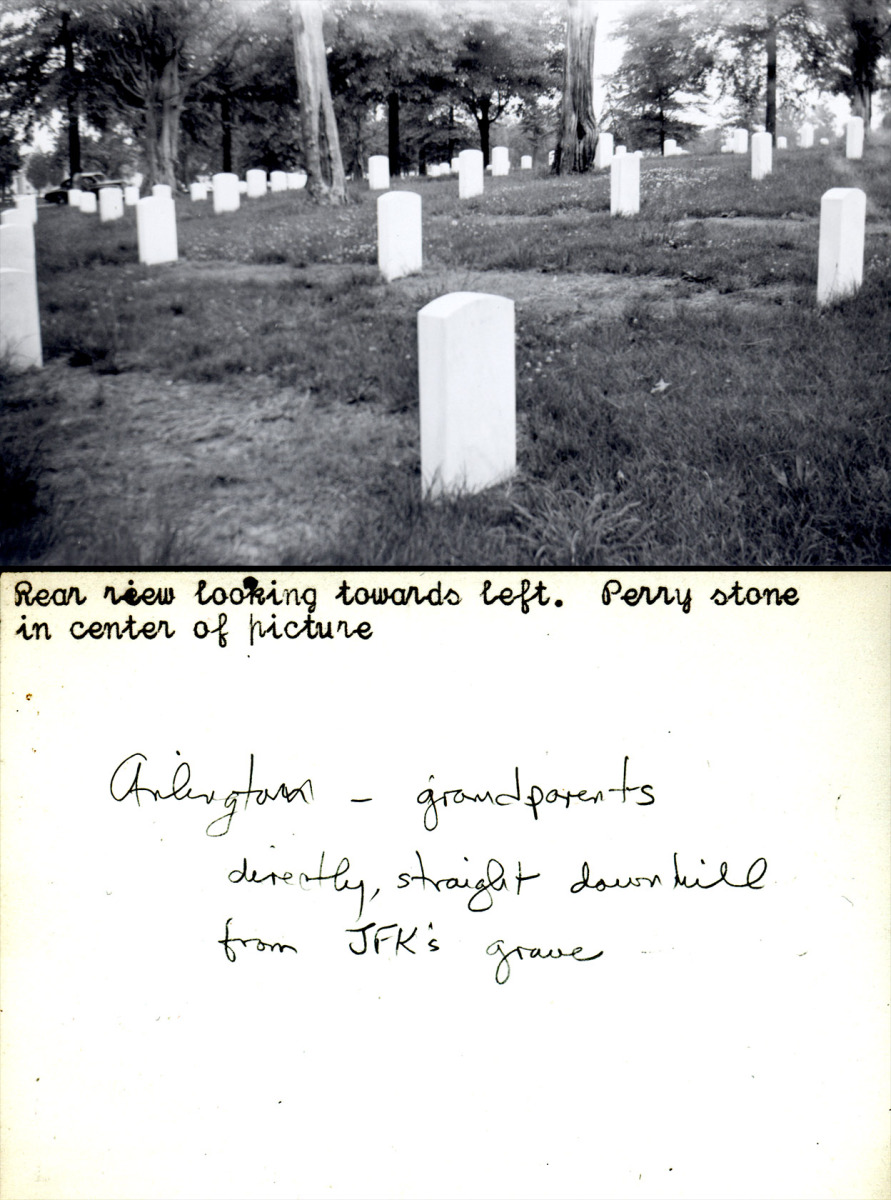 Rear view looking towards left. Perry stone
in center of picture
Arlington – grandparents
directly, straight downhill
from JFK's grave